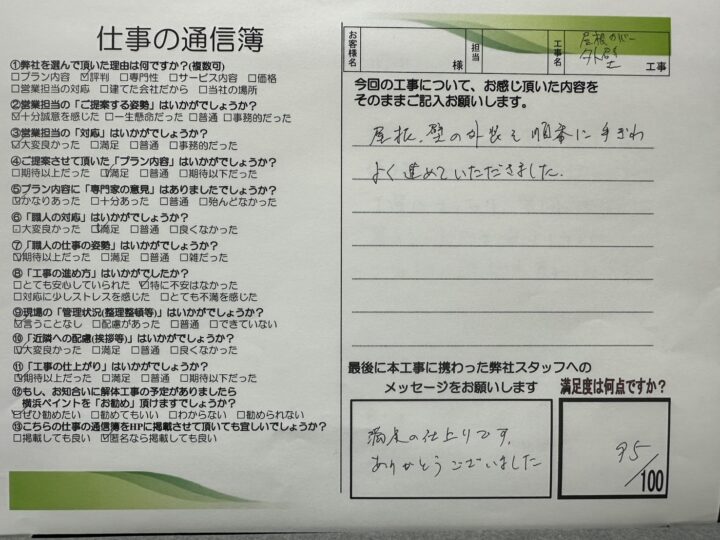 仕事の通信簿
①弊社を選んで頂いた理由は何ですか?(複数可)
□プラン内容 ☑評判 □専門性 □サービス内容 □価格
□営業担当の対応 □建てた会社だから □当社の場所
②営業担当の「ご提案する姿勢」はいかがでしょうか?
☑十分誠意を感じた □一生懸命だった □普通 □事務的だった
③営業担当の「対応」はいかがでしょうか?
☑大変良かった □満足 □普通 □事務的だった
④ご提案させて頂いた「プラン内容」はいかがでしょうか?
□期待以上だった ☑満足 □普通 □期待以下だった
⑤プラン内容に「専門家の意見」はありましたでしょうか?
☑かなりあった □十分あった □普通 □殆んどなかった
⑥「職人の対応」はいかがでしょうか?
□大変良かった ☑満足 □普通 □良くなかった
⑦「職人の仕事の姿勢」はいかがでしょうか?
☑期待以上だった □満足 □普通 □雑だった
⑧「工事の進め方」はいかがでしたか?
□とても安心していられた ☑特に不安はなかった
□対応に少しストレスを感じた □とても不満を感じた
⑨現場の「管理状況(整理整頓等)」はいかがでしょうか?
☑言うことなし □配慮があった □普通 □できていない
⑩「近隣への配慮(挨拶等)」はいかがでしょうか?
☑大変良かった □満足 □普通 □良くなかった
⑪「工事の仕上がり」はいかがでしょうか?
☑期待以上だった □満足 □普通 □期待以下だった
⑫もし、お知合いに解体工事の予定がありましたら
横浜ペイントを「お勧め」頂けますでしょうか?
☑ぜひ勧めたい □勧めてもいい □わからない □勧められない
⑬こちらの仕事の通信簿をHPに掲載させて頂いても宜しいでしょうか?
□掲載しても良い ☑匿名なら掲載しても良い
お客様名 様 担当 工事名 屋根カバー 外壁 工事
今回の工事について、お感じ頂いた内容を
そのままご記入お願いします。
屋根、壁の外装を順番に手ぎわ
よく進めていただきました。
最後に本工事に携わった弊社スタッフへの
メッセージをお願いします
満足の仕上りです。
ありがとうございました
満足度は何点ですか?
95/100